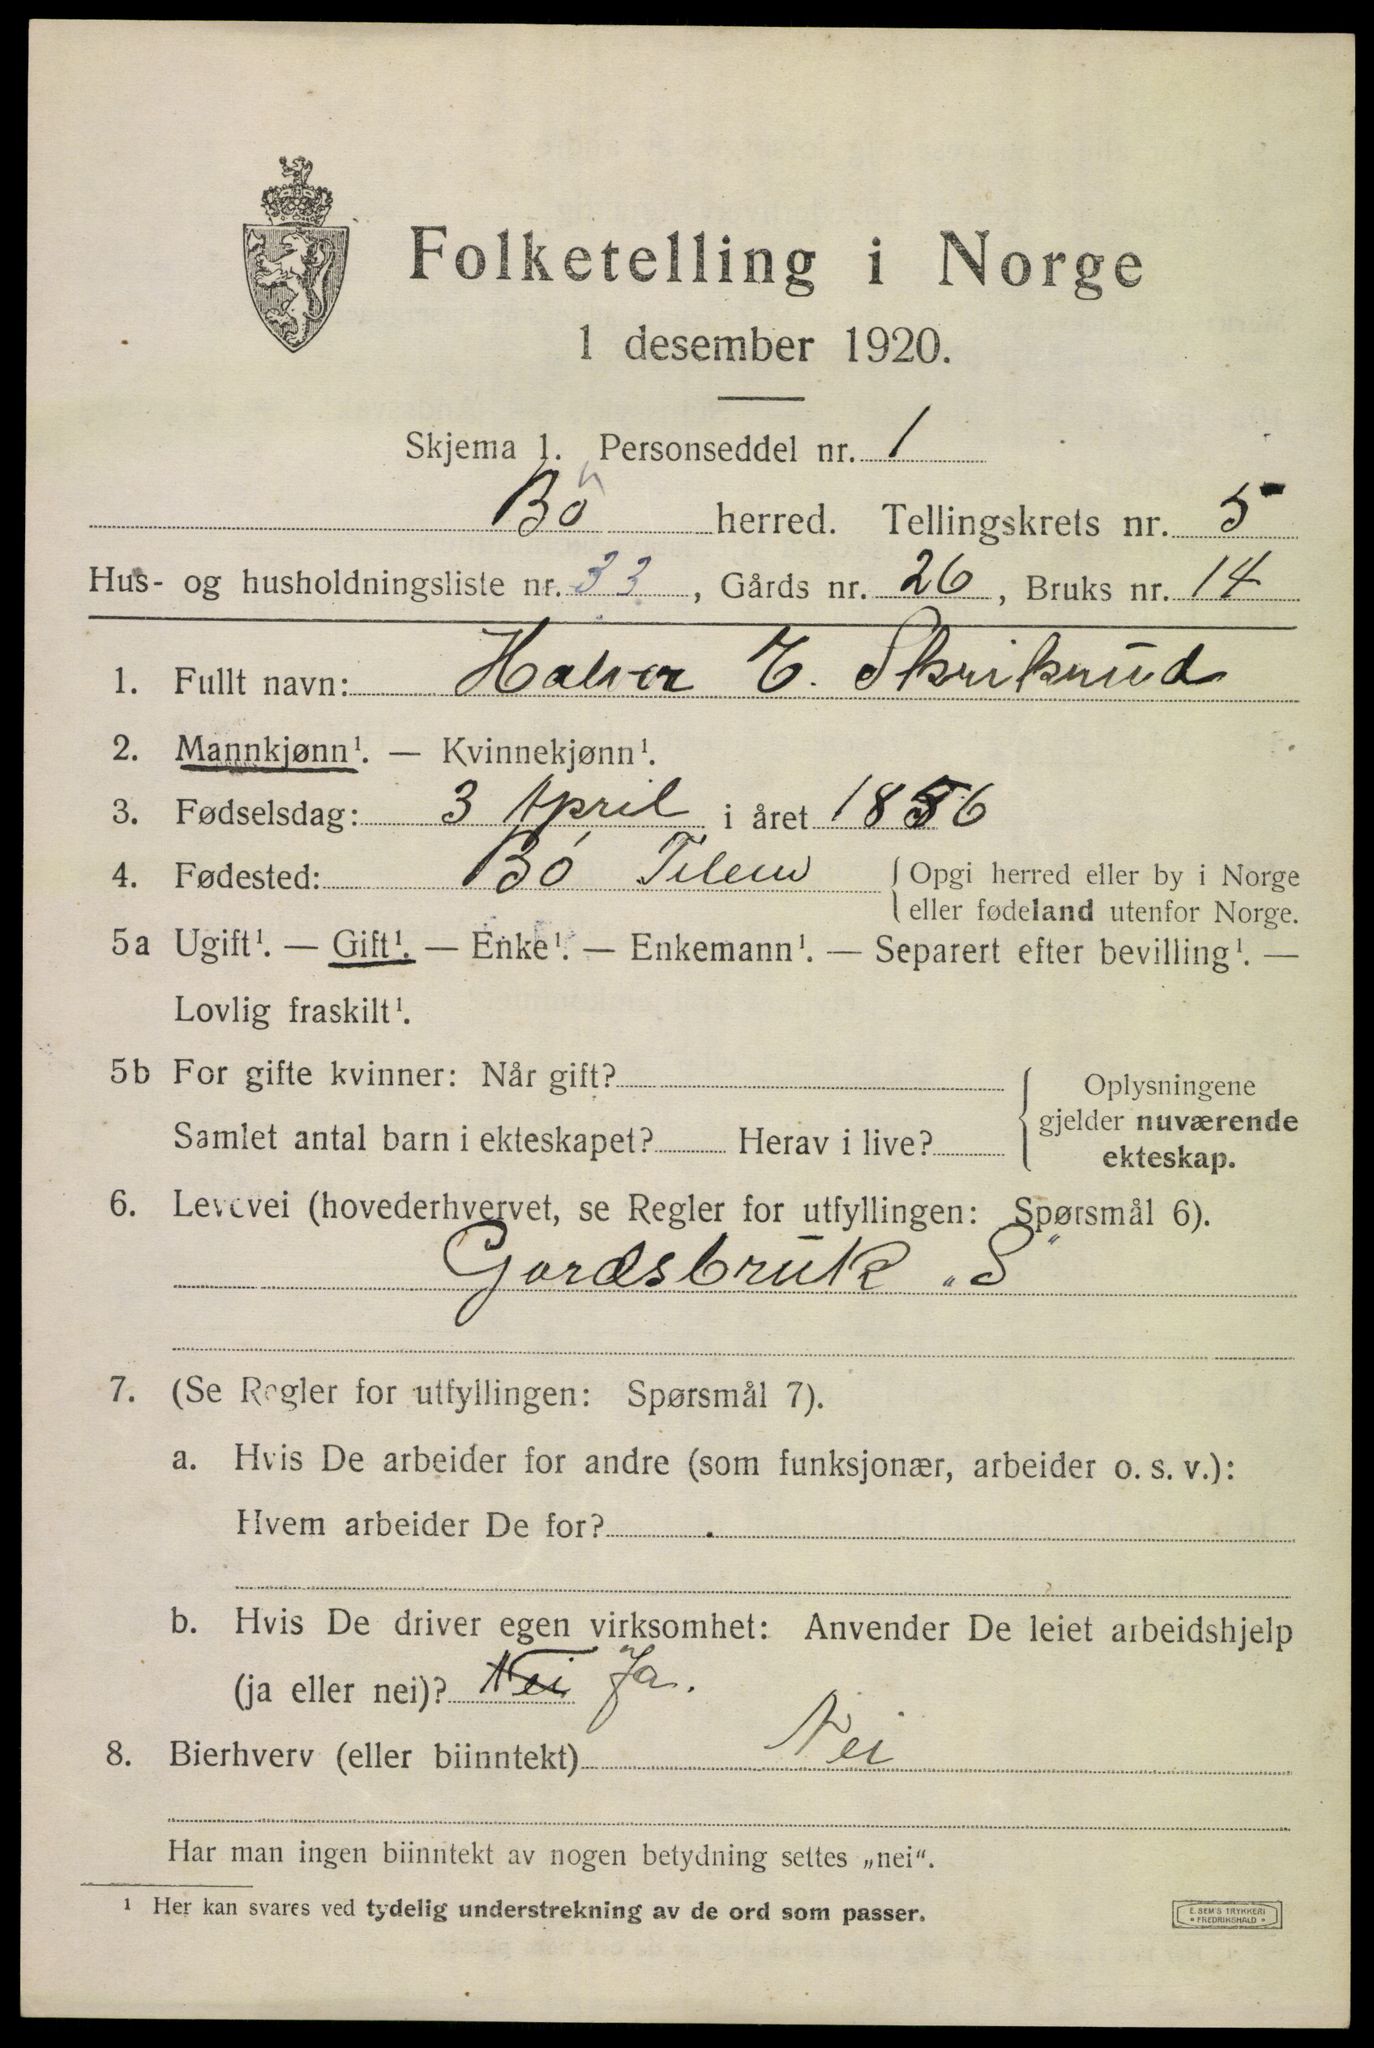 Folketelling i Norge
1 desember 1920.
Skjema 1. Personseddel nr. 1
Bö herred. Tellingskrets nr. 5
Hus- og husholdningsliste nr. 33, Gårds nr. 26, Bruks nr. 14
1. Fullt navn: Halvor E. Skrikrud
2. Mannkjønn¹. — Kvinnekjønn¹.
3. Fødselsdag: 3 April i året 1856
4. Fødested: Bö Telem { Opgi herred eller by i Norge
eller fødeland utenfor Norge.
5a Ugift¹. — Gift¹. — Enke¹. — Enkemann¹. — Separert efter bevilling¹. —
Lovlig fraskilt¹.
5b For gifte kvinner: Når gift? { Oplysningene
gjelder nuværende
Samlet antal barn i ekteskapet? Herav i live?
ekteskap.
6. Levevei (hovederhvervet, se Regler for utfyllingen: Spørsmål 6).
Gardsbruk „S"
7. (Se Regler for utfyllingen: Spørsmål 7).
a. Hvis De arbeider for andre (som funksjonær, arbeider o. s. v.):
Hvem arbeider De for?
b. Hvis De driver egen virksomhet: Anvender De leiet arbeidshjelp
(ja eller nei)? Nei Ja.
8. Bierhverv (eller biinntekt) Nei
Har man ingen biinntekt av nogen betydning settes „nei“.
¹ Her kan svares ved tydelig understrekning av de ord som passer.
E. SEM'S TRYKKERI
• FREDRIKSHALD •